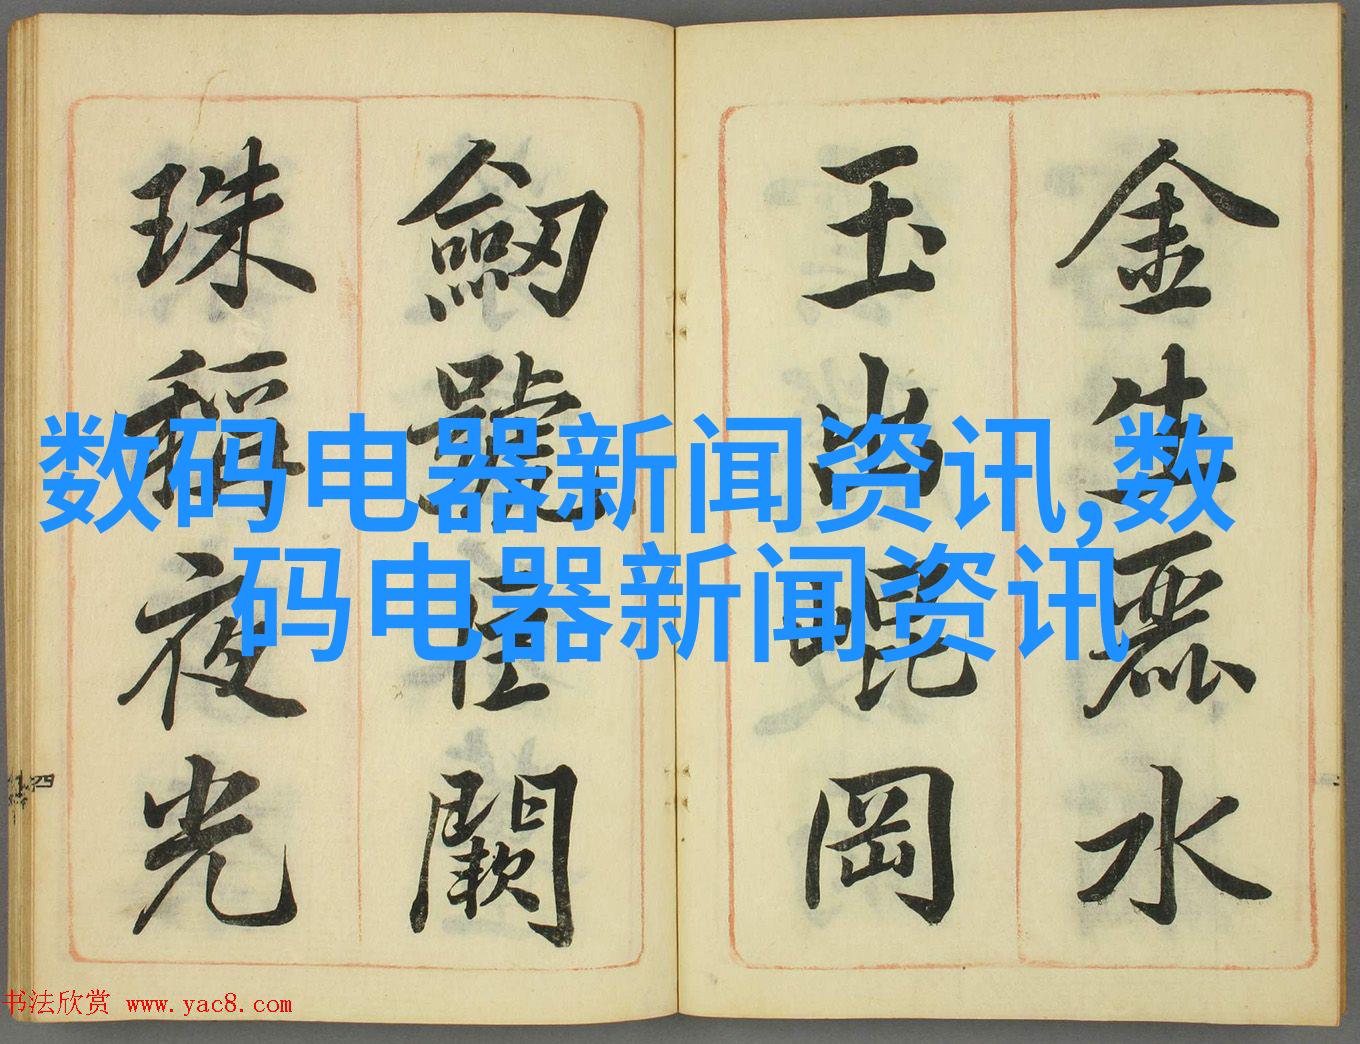 金生麗水
玉出崐岡
劒號巨闕
珠稱夜光
数码电器新闻资讯,数
码电器新闻资讯
四
书法欣赏 www.yac8.com